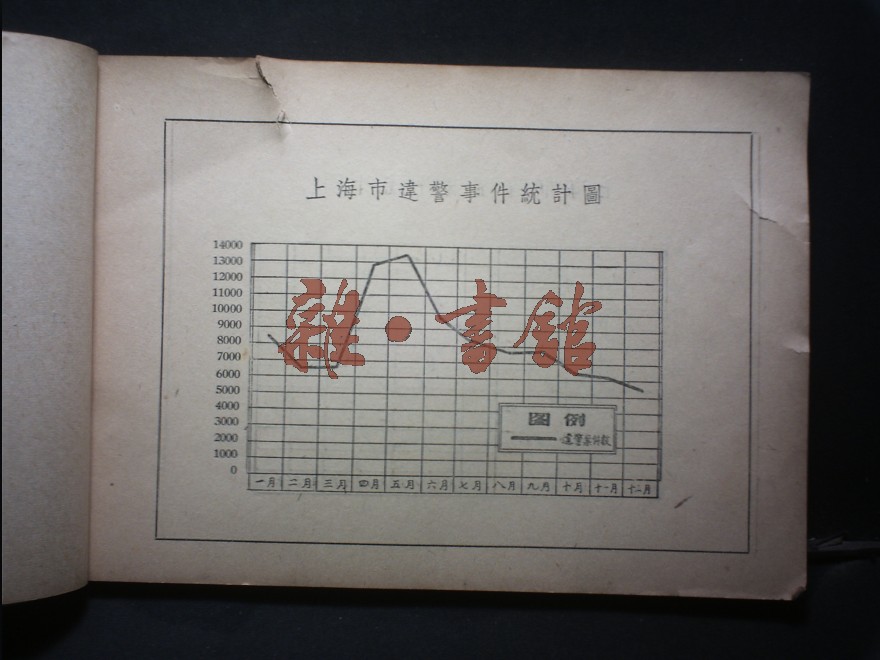 上海市違警事件統計圖
14000
13000
12000
11000
10000
9000
8000
7000
6000
5000
4000
3000
2000
1000
0
雜·書館
圖例
違警案件數
一月 二月 三月 四月 五月 六月 七月 八月 九月 十月 十一月 十二月